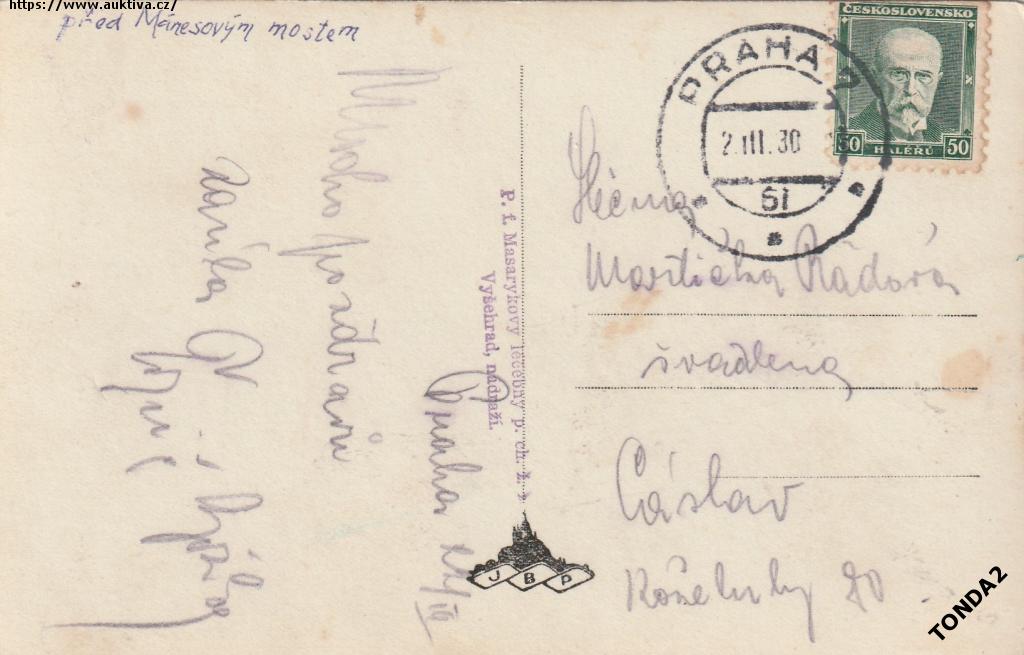 https://www.auktiva.cz/
před Mánesovým mostem
Mnoho pozdravů
Praha
P. f. Masarykovy léčebny p. ch. ž. v
Vyšehrad, nádraží.
J B P
PRAHA
2.III.30
ČESKOSLOVENSKO
50 HALÉŘŮ 50
Slečna
Mařtička Řádová
švadlena
Čáslav
Koželuhy 80
TONDA2